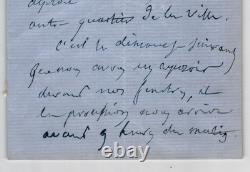 autres quartiers de la ville.
C'est le dimanche suivant
que nous avons un reposoir
devant nos fenêtres, et
la procession nous arrive
avant 9 heures du matin